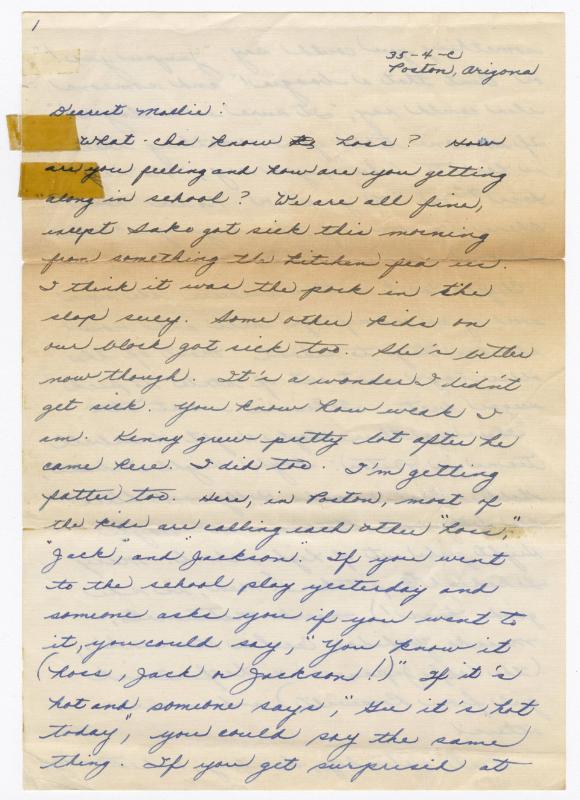 1
35-4-C
Poston, Arizona
Dearest Mollie:
What-cha know hoss? How
are you feeling and how are you getting
along in school? We are all fine,
except Sako got sick this morning
from something the kitchen fed us.
I think it was the pork in the
slop suey. Some other kids on
our block got sick too. She's better
now though. It's a wonder I didn't
get sick. You know how weak I
am. Kenny grew pretty lot after he
came here. I did too. I'm getting
fatter too. Here, in Poston, most of
the kids are calling each other "hoss,"
"Jack," and "Jackson." If you went
to the school play yesterday and
someone asks you if you went to
it, you could say, "You know it
(hoss, Jack or Jackson!)" If it's
hot and someone says, "Gee it's hot
today," you could say the same
thing. If you get surprised at